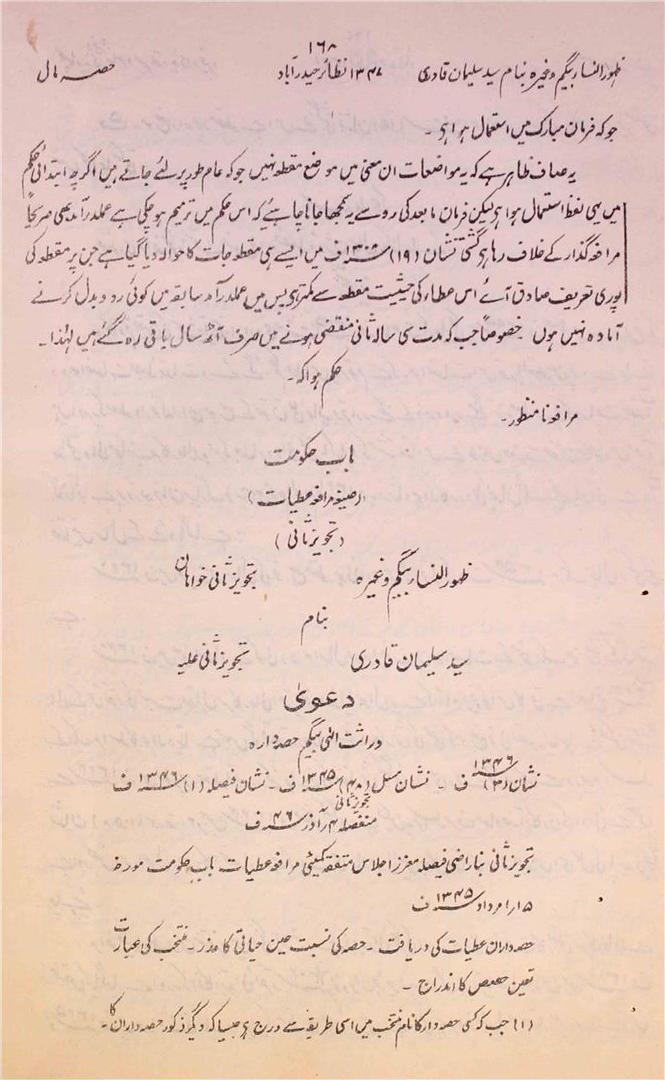 ۱۶۸
ظہور النساء بیگم وغیرہ بنام سید سلیمان قادری ۱۳۴۷ نظائر حیدرآباد حصہ مال
جو کہ فرمان مبارک میں استعمال ہوا ہو۔
یہ صاف ظاہر ہے کہ یہ مواضعات ان معنی میں مواضع مقطعہ نہیں جو کہ عام طور پر لئے جاتے ہیں اگرچہ ابتدائی حکم
میں یہی لفظ استعمال ہوا ہو لیکن فرمان مابعد کی رو سے یہ سمجھا جانا چاہئے کہ اس حکم میں ترمیم ہو چکی ہے عملدرآمد بھی صریحاً
مرافعہ گذار کے خلاف رہا ہو گشتی نشان (۱۹) ۱۳۰۸ ف میں ایسے ہی مقطعہ جات کا حوالہ دیا گیا ہے جن پر مقطعہ کی
پوری تعریف صادق آئے اس عطاء کی حیثیت مقطعہ سے کمتر ہو پس میں عملدرآمد سابقہ میں کوئی ردو بدل کرنے
آمادہ نہیں ہوں۔ خصوصاً جب کہ مدت سی سالہ ثانی منقضی ہونے میں صرف آٹھ سال باقی رہ گئے ہیں لہٰذا۔
حکم ہوا کہ۔
مرافعہ نامنظور۔
باب حکومت
(صیغہ مرافعہ عطیات)
(تجویز ثانی)
ظہور النساء بیگم وغیرہ تجویز ثانی خواہان
بنام
سید سلیمان قادری تجویز ثانی علیہ
دعویٰ
وراثت الٰہی بیگم حصہ دارہ
نشان (۳) ۱۳۴۶ ف۔ نشان مسل (۴۸) ۱۳۴۵ ف۔ نشان فیصلہ (۱) ۱۳۴۶ ف
تجویز ثانی
منفصلہ ۴ آذر ۴۶ ف
تجویز ثانی بناراضی فیصلہ معزز اجلاس متفقہ کمیٹی مرافعہ عطیات باب حکومت مورخہ
۱۵ امرداد ۱۳۴۵ ف
حصہ داران عطیات کی دریافت۔ حصہ کی نسبت حین حیاتی کا عذر۔ منتخب کی عبارت
تعین حصص کا اندراج۔
(۱) جب کہ کسی حصہ دار کا نام منتخب میں اسی طریقہ سے درج ہو جیسا کہ دیگر مذکور حصہ داران کا۔